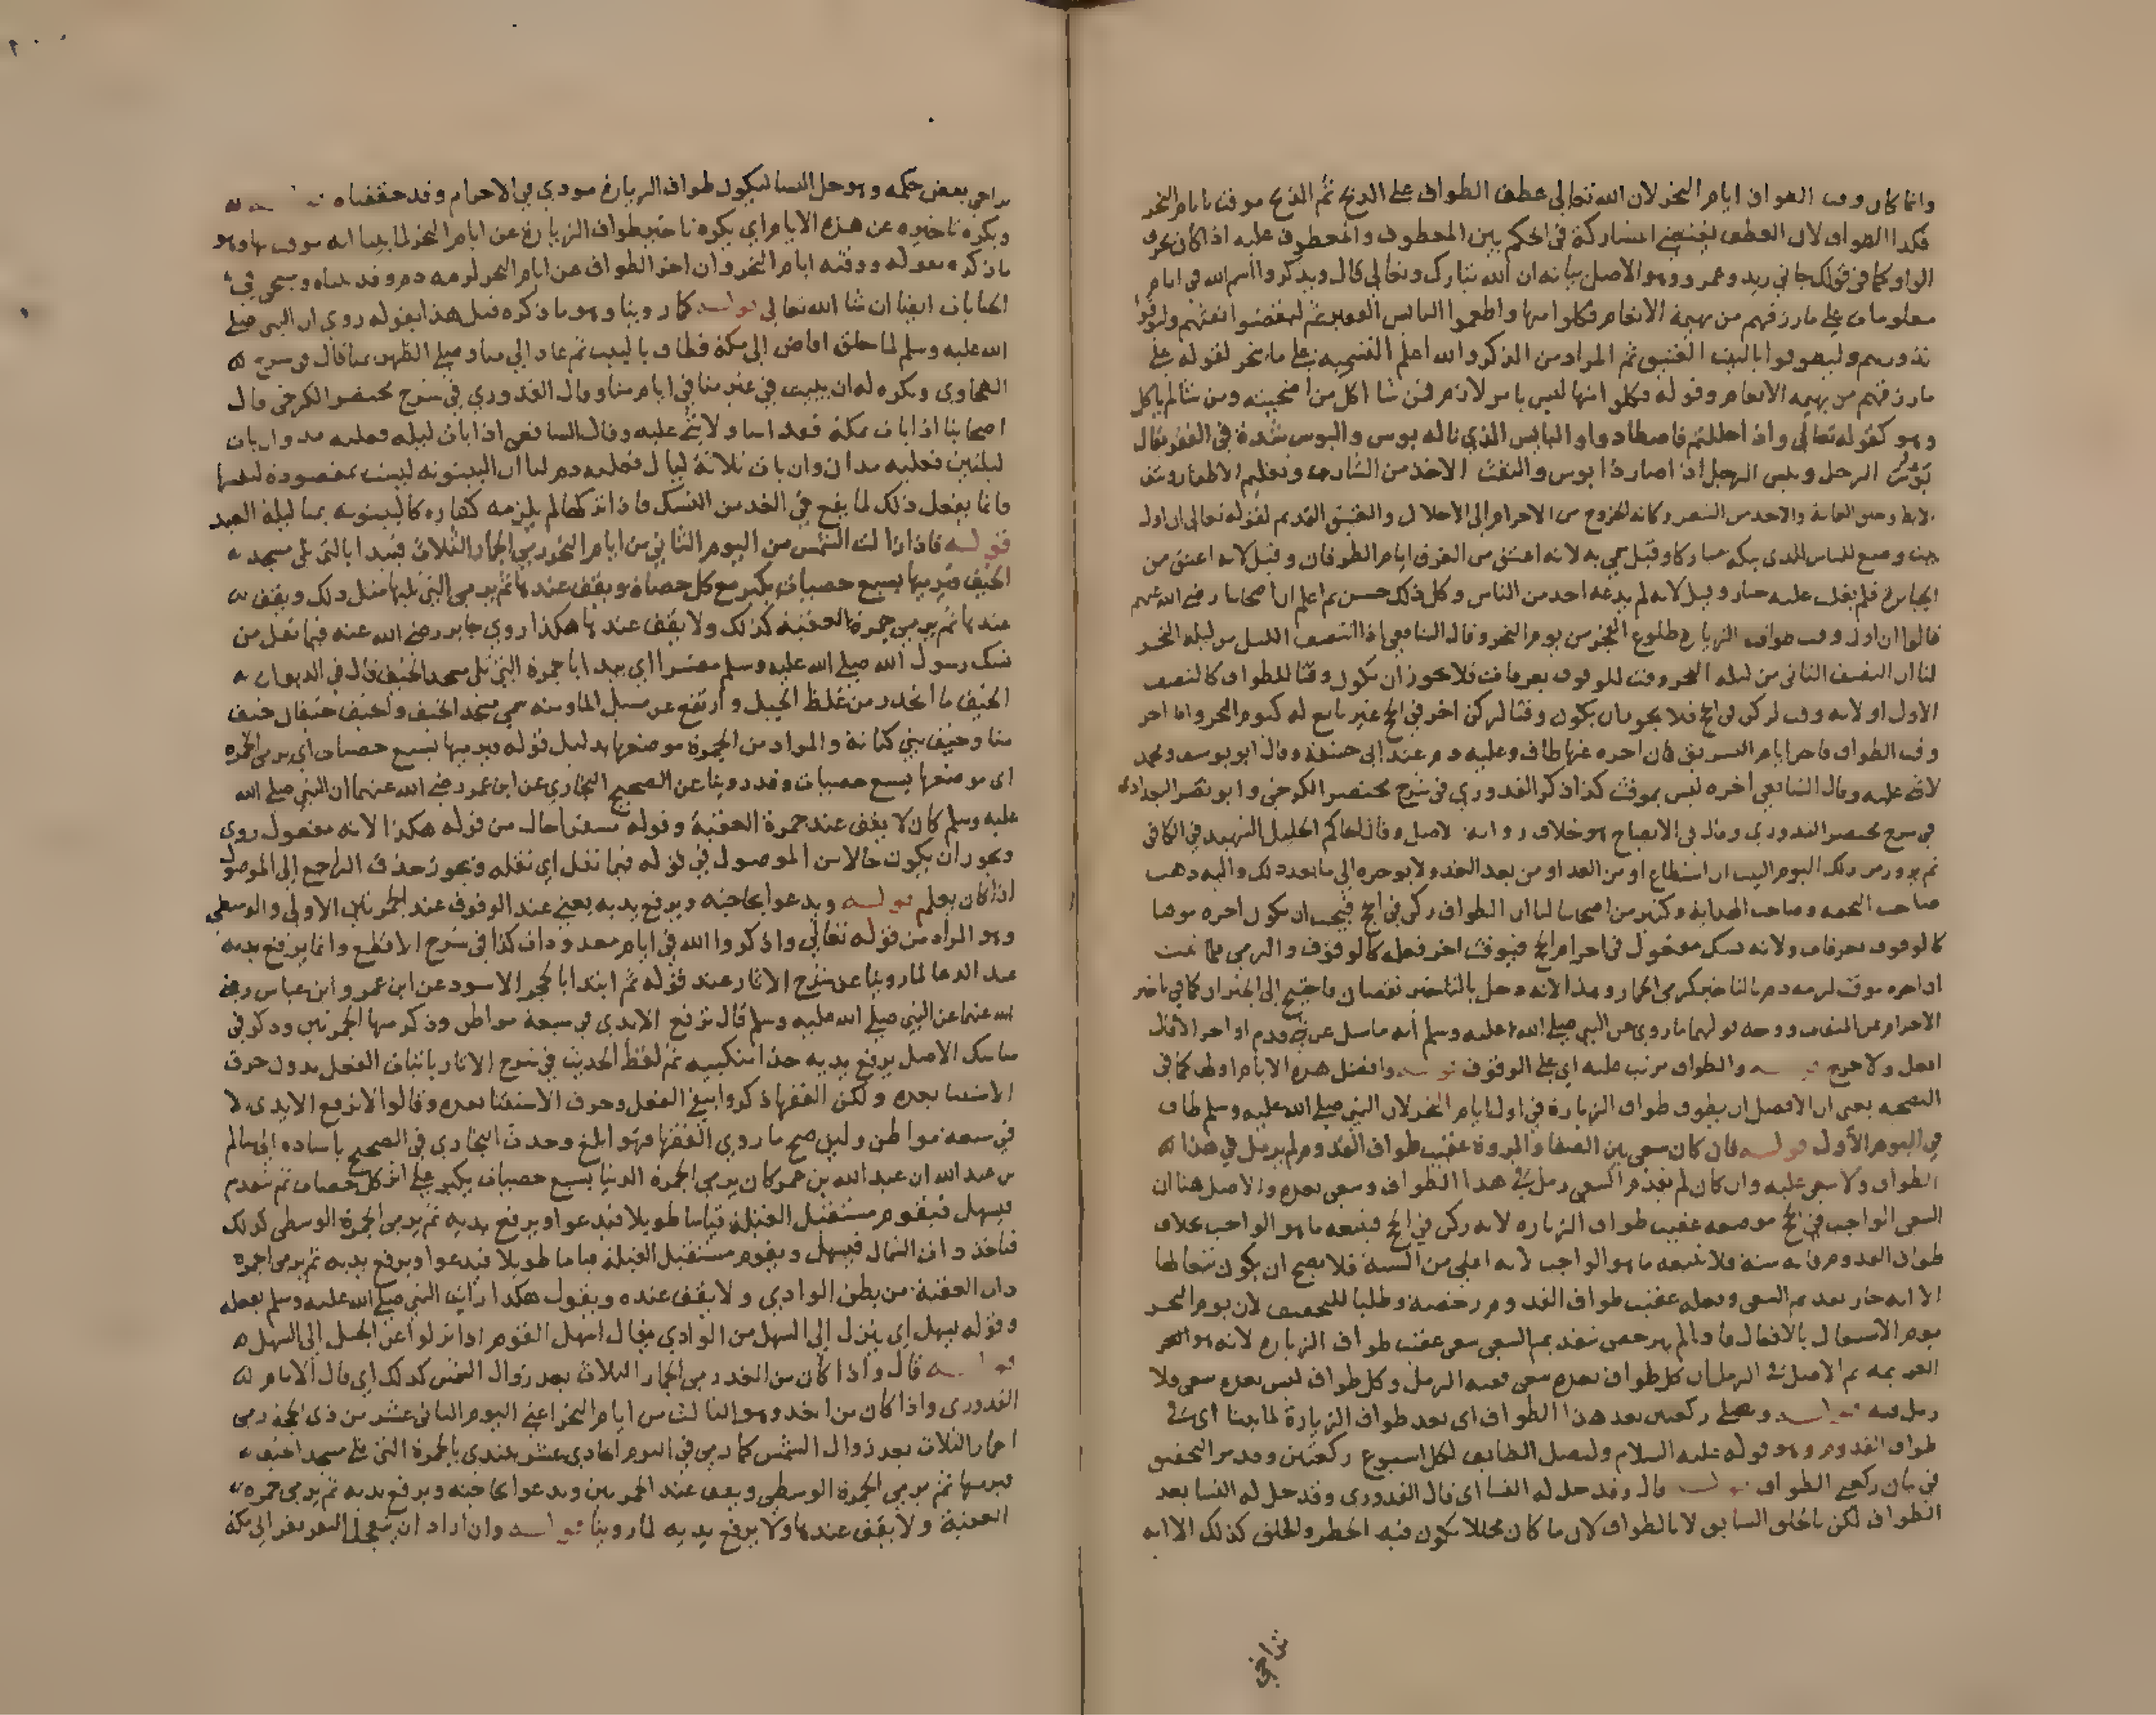 وانما كان وقت الطواف ايام النحر لان الله تعالى عطف الطواف على الذبح ثم الذبح موقت بايام النحر
فكذا الطواف لان العطف يقتضي المشاركة في الحكم بين المعطوف والمعطوف عليه اذا كان بحرف
الواو كما في قولك جاني زيد وعمرو وهو الاصل بيانه ان الله تبارك وتعالى قال ويذكروا اسم الله في ايام
معلومات على ما رزقهم من بهيمة الانعام فكلوا منها واطعموا البايس الفقير ثم ليقضوا تفثهم وليوفوا
نذورهم وليطوفوا بالبيت العتيق ثم المراد من الذكر والله اعلم التسمية على ما ينحر لقوله على
ما رزقهم من بهيمة الانعام وقوله فكلوا منها ليس بامر لازم فمن شا اكل من اضحيته ومن شا لم ياكل
وهو كقوله تعالى واذا حللتم فاصطادوا والبايس الذي ناله بوس والبوس شدة في الفقر يقال
بؤس الرجل وبئس الرجل اذا صار ذا بوس والتفث الاخذ من الشارب وتقليم الاظفار ونتف
الابط وحلق العانة والاخذ من الشعر وكانه الخروج من الاحرام الى الاحلال والعتيق القديم لقوله تعالى ان اول
بيت وضع للناس للذي ببكة مباركا وقيل سمي به لانه اعتق من الغرق ايام الطوفان وقيل لانه اعتق من
الجبابرة فلم يغلب عليه جبار وقيل لانه لم يدعه احد من الناس وكل ذلك حسن ثم اعلم ان اصحابنا رضي الله عنهم
قالوا ان اول وقت طواف الزيارة طلوع الفجر من يوم النحر وقال الشافعي اذا انتصف الليل من ليلة النحر
لنا ان النصف الثاني من ليلة النحر وقت للوقوف بعرفات فلا يجوز ان يكون وقتا للطواف كالنصف
الاول او لانه وقت لركن في الحج فلا يجوز ان يكون وقتا لركن اخر في الحج غير تابع له كيوم النحر واما اخر
وقت الطواف فاخر ايام التشريق فان اخره عنها طاف وعليه دم عند ابي حنيفة وقال ابو يوسف ومحمد
لا شي عليه وقال الشافعي اخره ليس بموقت كذا ذكر القدوري في شرح مختصر الكرخي وابو نصر البغدادي
في شرح مختصر القدوري وقال في الايضاح هو خلاف رواية الاصل وقال الحاكم الجليل الشهيد في الكافي
ثم يزور من ذلك اليوم البيت ان استطاع او من الغد او من بعد الغد ولا يوخره الى ما بعد ذلك واليه ذهب
صاحب التحفه وصاحب الهداية وكثير من اصحابنا لنا ان الطواف ركن في الحج فيجب ان يكون اخره موقتا
كالوقوف بعرفات ولانه نسك مفعول في احرام الحج فيوقت اخر فعله كالوقوف والرمي فلما ثبت
ان اخره موقت لزمه دم بالتاخير كرمي الجمار وهذا لانه دخل بالتاخير نقصان فاحتيج الى الجبران كما في تاخير
الاحرام عن الميقات ووجه قولهما ما روي عن النبي صلى الله عليه وسلم انه ما سئل عن شي قدم او اخر الا قال
افعل ولا حرج قوله والطواف مرتب عليه اي على الوقوف قوله وافضل هذه الايام اولها كما في
التضحيه يعني ان الافضل ان يطوف طواف الزيارة في اول ايام النحر لان النبي صلى الله عليه وسلم طاف
في اليوم الأول قوله فان كان سعى بين الصفا والمروة عقيب طواف القدوم لم يرمل في هذا
الطواف ولا سعي عليه وان كان لم يقدم السعي رمل في هذا الطواف وسعى بعده والاصل هنا ان
السعي الواجب في الحج موضعه عقيب طواف الزيارة لانه ركن في الحج فيتبعه ما هو الواجب بخلاف
طواف القدوم فانه سنة فلا يتبعه ما هو الواجب لانه اعلى من السنة فلا يصح ان يكون تبعا لها
الا انه جاز تقديم السعي وفعله عقيب طواف القدوم رخصة وطلبا للتخفيف لان يوم النحر
يوم الاشتغال بالافعال فاذا لم يترخص بتقديم السعي سعى عقيب طواف الزيارة لانه هو
العزيمه ثم الاصل في الرمل ان كل طواف بعده سعي ففيه الرمل وكل طواف ليس بعده سعي فلا
رمل فيه قوله ويصلي ركعتين بعد هذا الطواف اي بعد طواف الزيارة لما بينا اي في
طواف القدوم وهو قوله عليه السلام وليصل الطايف لكل اسبوع ركعتين وقد مر التحقيق
في بيان ركعتي الطواف قوله قال وقد حل له النسا اي قال القدوري وقد حل له النسا بعد
الطواف لكن بالحلق السابق لا بالطواف لان ما كان محللا يكون فيه الحظر والحلق كذلك الا انه
تراخى
تراخى بعض حكمه وهو حل النسا ليكون طواف الزيارة مودى في الاحرام وقد حققناه قوله
ويكره تاخيره عن هذه الايام اي يكره تاخير طواف الزيارة عن ايام النحر لما بينا انه موقت بها وهو
ما ذكره بقوله ووقته ايام النحر وان اخر الطواف عن ايام النحر لزمه دم وقد بيناه وسيجي في
الجنايات ايضا ان شا الله تعالى قوله كما روينا وهو ما ذكره قبل هذا بقوله روي ان النبي صلى
الله عليه وسلم لما حلق افاض الى مكة فطاف بالبيت ثم عاد الى منا وصلى الظهر بمنا قال في شرح
الطحاوي ويكره له ان يبيت في غير منا في ايام منا وقال القدوري في شرح مختصر الكرخي قال
اصحابنا اذا بات بمكة فقد اسا ولا شي عليه وقال الشافعي اذا بات ليله فعليه مد وان بات
ليلتين فعليه مدان وان بات ثلاثة ليال فعليه دم لنا ان البيتوتة ليست بمقصودة لنفسها
وانما يفعل ذلك لما يقع في الغد من النسك فاذا تركها لم يلزمه كفاره كالبيتوته بمنا ليلة العيد
قوله فاذا زالت الشمس من اليوم الثاني من ايام النحر رمي الجمار الثلاث فيبدا بالتي تلي مسجد
الخيف فيرميها بسبع حصيات يكبر مع كل حصاة ويقف عندها ثم يرمي التي تليها مثل ذلك ويقف
عندها ثم يرمي جمرة العقبة كذلك ولا يقف عندها هكذا روى جابر رضي الله عنه فيما نقل من
نسك رسول الله صلى الله عليه وسلم مفسرا اي يبدا بالجمرة التي تلي مسجد الخيف قال في الديوان
الخيف ما انحدر من غلظ الجبل وارتفع عن مسيل الماء ومنه سمي مسجد الخيف والخيف خيفان خيف
منا وخيف بني كنانة والمراد من الجمرة موضعها بدليل قوله فيرميها بسبع حصيات اي يرمي الجمرة
اي موضعها بسبع حصيات وقد روينا عن الصحيح البخاري عن ابن عمر رضي الله عنهما ان النبي صلى الله
عليه وسلم كان لا يقف عند جمرة العقبة وقوله مفسرا حال من قوله هكذا لانه مفعول روى
ويجوز ان يكون حالا من الموصول في قوله فيما نقل اي نقله ويجوز حذف الراجع الى الموصول
اذا كان يعلم قوله ويدعوا بحاجته ويرفع يديه يعني عند الوقوف عند الجمرتين الاولى والوسطى
وهو المراد من قوله تعالى واذكروا الله في ايام معدودات كذا في شرح الاقطع وانما يرفع يديه
عند الدعا لما روينا عن شرح الاثار عند قوله ثم ابتدا بالحجر الاسود عن ابن عمر وابن عباس رضي
الله عنهما عن النبي صلى الله عليه وسلم قال ترفع الايدي في سبعة مواطن وذكر منها الجمرتين وذكر في
مناسك الاصل يرفع يديه حذا منكبيه ثم لفظ الحديث في شرح الاثار باثبات الفعل بدون حرف
الاستثنا بعده ولكن الفقها ذكروا بنفي الفعل وحرف الاستثنا بعده وقالوا لا ترفع الايدي الا
في سبعة مواطن ولين صح ما روى الفقها فهو ابلغ وحدث البخاري في الصحيح باسناده الى سالم
بن عبد الله ان عبد الله بن عمر كان يرمي الجمرة الدنيا بسبع حصيات يكبر على اثر كل حصاة ثم يتقدم
فيسهل فيقوم مستقبل القبلة قياما طويلا فيدعوا ويرفع يديه ثم يرمي الجمرة الوسطى كذلك
فياخذ ذات الشمال فيسهل ويقوم مستقبل القبلة قياما طويلا فيدعوا ويرفع يديه ثم يرمي الجمرة
ذات العقبة من بطن الوادي ولا يقف عنده ويقول هكذا رايت النبي صلى الله عليه وسلم يفعله
وقوله يسهل اي ينزل الى السهل من الوادي يقال اسهل القوم اذا نزلوا عن الجبل الى السهل
قوله قال واذا كان من الغد رمي الجمار الثلاث بعد زوال الشمس كذلك اي قال الامام
القدوري واذا كان من الغد وهو الثالث من ايام النحر اعني اليوم الثاني عشر من ذي الحجة رمى
الجمار الثلاث بعد زوال الشمس كما رمى في اليوم الحادي عشر يبتدي بالجمرة التي تلي مسجد الخيف
فيرميها ثم يرمي الجمرة الوسطى ويقف عند الجمرتين ويدعوا بحاجته ويرفع يديه ثم يرمي جمرة
العقبة ولا يقف عندها ولا يرفع يديه لما روينا قوله وان اراد ان يتعجل النفر نفر الى مكة